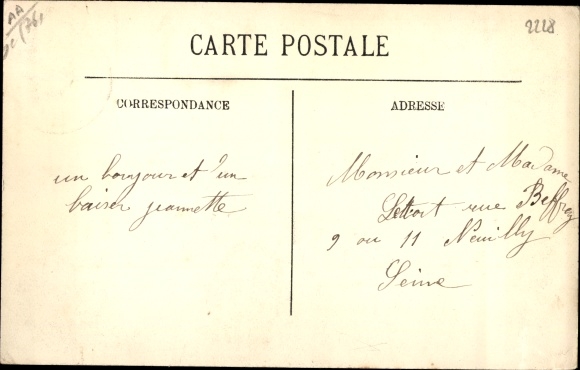 AA
2228
CARTE POSTALE
CORRESPONDANCE
un bonjour et d'un
baiser jeannette
ADRESSE
Monsieur et Madame
Letort rue Beffroy
9 ou 11 Neuilly
Seine